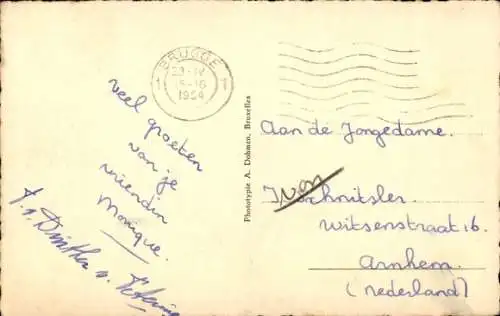 BRUGGE
1954
veel groeten
van je
vriendin
Monique.
Phototypie A. Dohmen, Bruxelles
Aan de Jongedame.
Schnitsler.
witsenstraat 16.
Arnhem.
(nederland)